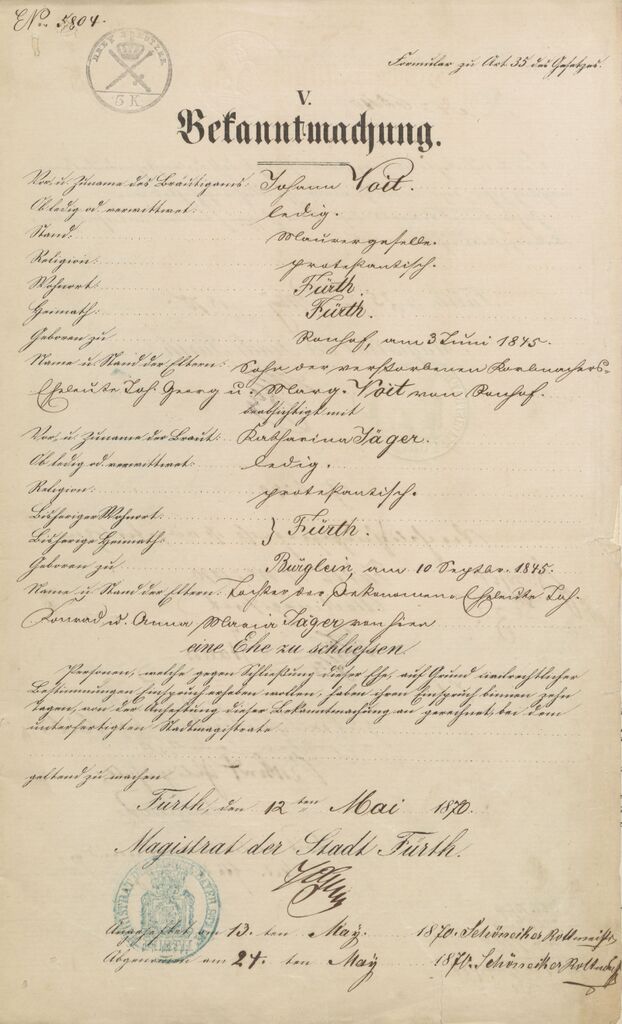 E. Nr. 5804.
DREY KREUTZER
5 K
Formular zu Art. 35 des Gesetzes.
V.
Bekanntmachung.
Vor- u. Zuname des Bräutigams: Johann Voit.
Ob ledig od. verwittwet: ledig.
Stand: Maurergeselle.
Religion: protestantisch.
Wohnort: Fürth.
Heimath: Fürth.
Geboren zu Ronhof, am 3 Juni 1845.
Name u. Stand der Eltern: Sohn der verstorbenen Korbmachers-
Eheleute Joh. Georg u. Marg. Voit von Ronhof.
beabsichtigt mit
Vor- u. Zuname der Braut: Katharina Jäger.
Ob ledig od. verwittwet: ledig.
Religion: protestantisch.
Bisheriger Wohnort: } Fürth.
Bisherige Heimath:
Geboren zu Bürglein, am 10 Septbr. 1845.
Name u. Stand der Eltern: Tochter der Oekonomen-Eheleute Joh.
Konrad u. Anna Maria Jäger von hier
eine Ehe zu schließen.
Personen, welche gegen Schließung dieser Ehe, auf Grund civilrechtlicher
Bestimmungen Einspruch erheben wollen, haben ihren Einspruch binnen zehn
Tagen, von der Anheftung dieser Bekanntmachung an gerechnet, bei dem
unterfertigten Stadtmagistrate
geltend zu machen.
Fürth, den 12ten Mai 1870.
Magistrat der Stadt Fürth.
Angeheftet am 13. ten May. 1870. Schöneiker Rottmeister
Abgenommen am 24. ten May 1870. Schöneiker